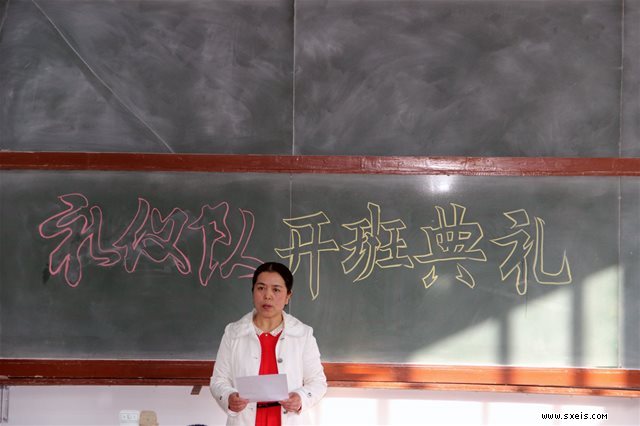 礼仪队开班典礼
www.sxeis.com